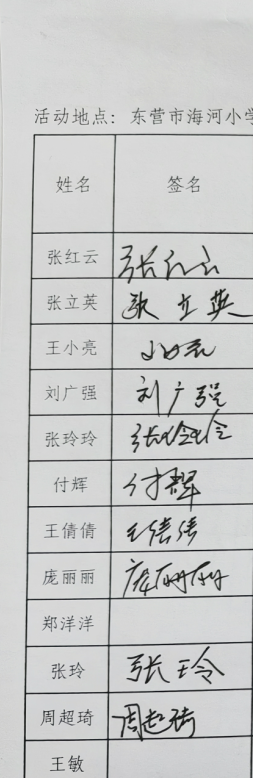 活动地点：东营市海河小学
姓名 签名
张红云 张红云
张立英 张立英
王小亮
刘广强 刘广强
张玲玲 张玲玲
付辉 付辉
王倩倩 王倩倩
庞丽丽 庞丽丽
郑洋洋
张玲 张玲
周超琦 周超琦
王敏